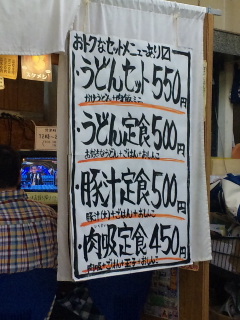 おトクなセットメニューあり〼
・うどんセット550円
かけうどん+肉飯ミニ
・うどん定食500円
おあげうどん+ごはん+おしんこ
・豚汁定食500円
豚汁(大)+ごはん+おしんこ
・肉吸定食450円
肉吸+ごはん+玉子+おしんこ